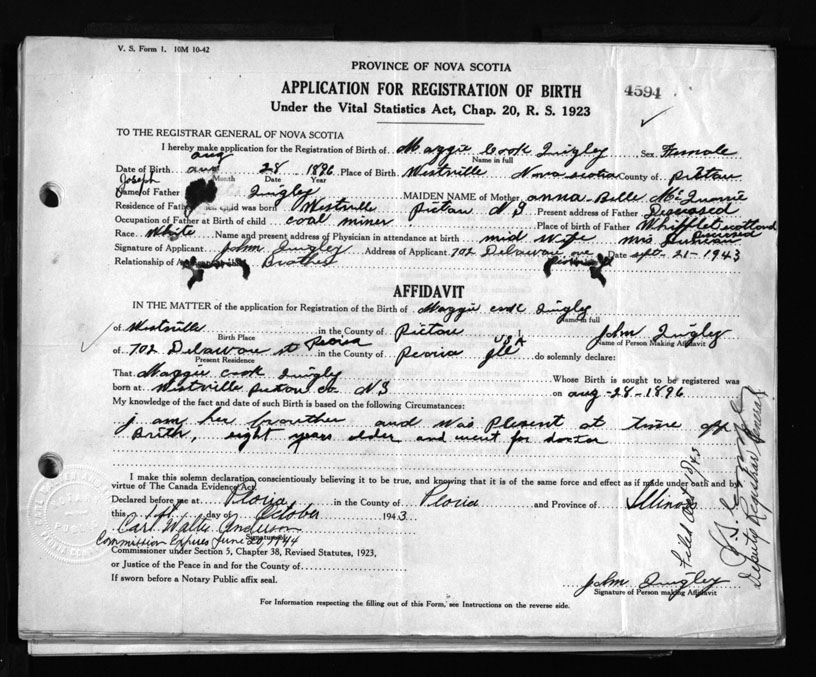 V. S. Form 1. 10M 10-42
PROVINCE OF NOVA SCOTIA
APPLICATION FOR REGISTRATION OF BIRTH
4594
Under the Vital Statistics Act, Chap. 20, R. S. 1923
TO THE REGISTRAR GENERAL OF NOVA SCOTIA
I hereby make application for the Registration of Birth of Maggie Cook Quigley Sex Female
Name in full
aug
Date of Birth aug 28 1896 Place of Birth Westville Nova scotia County of Pictou
Month Date Year
Joseph
Name of Father Quigley MAIDEN NAME of Mother anna-Belle
Residence of Father when child was born Westville Pictou N S Present address of Father Deceased
Occupation of Father at Birth of child coal miner Place of Birth of Father
Race White Name and present address of Physician in attendance at birth mid Wife mrs Duncan Deceased
Signature of Applicant John Quigley Address of Applicant 702 Delaware ave Date sept-21-1943
Relationship of Applicant to child Brother
AFFIDAVIT
IN THE MATTER of the application for Registration of the Birth of Maggie cook Quigley
Name in full
of Westville in the County of Pictou John Quigley
Birth Place Name of Person Making Affidavit
of 702 Delaware st Peoria in the County of Peoria Ill USA do solemnly declare:
Present Residence
That Maggie cook Quigley Whose Birth is sought to be registered was
born at Westville Pictou co NS on aug-28-1896
My knowledge of the fact and date of such Birth is based on the following Circumstances:
j am her brouther and was Plesent at time off
Brith, eight years older and went for doctor
I make this solemn declaration conscientiously believing it to be true, and knowing that it is of the same force and effect as if made under oath and by
virtue of The Canada Evidence Act.
Declared before me at Peoria in the County of Peoria and Province of Illinois
this 1st day of October 1943
Carl Walter Anderson
Signature of
Commission Expires June 20, 1944
Commissioner under Section 5, Chapter 38, Revised Statutes, 1923,
or Justice of the Peace in and for the County of
If sworn before a Notary Public affix seal.
John Quigley
Signature of Person making Affidavit
For Information respecting the filling out of this Form, see Instructions on the reverse side.
Deputy Registrar General